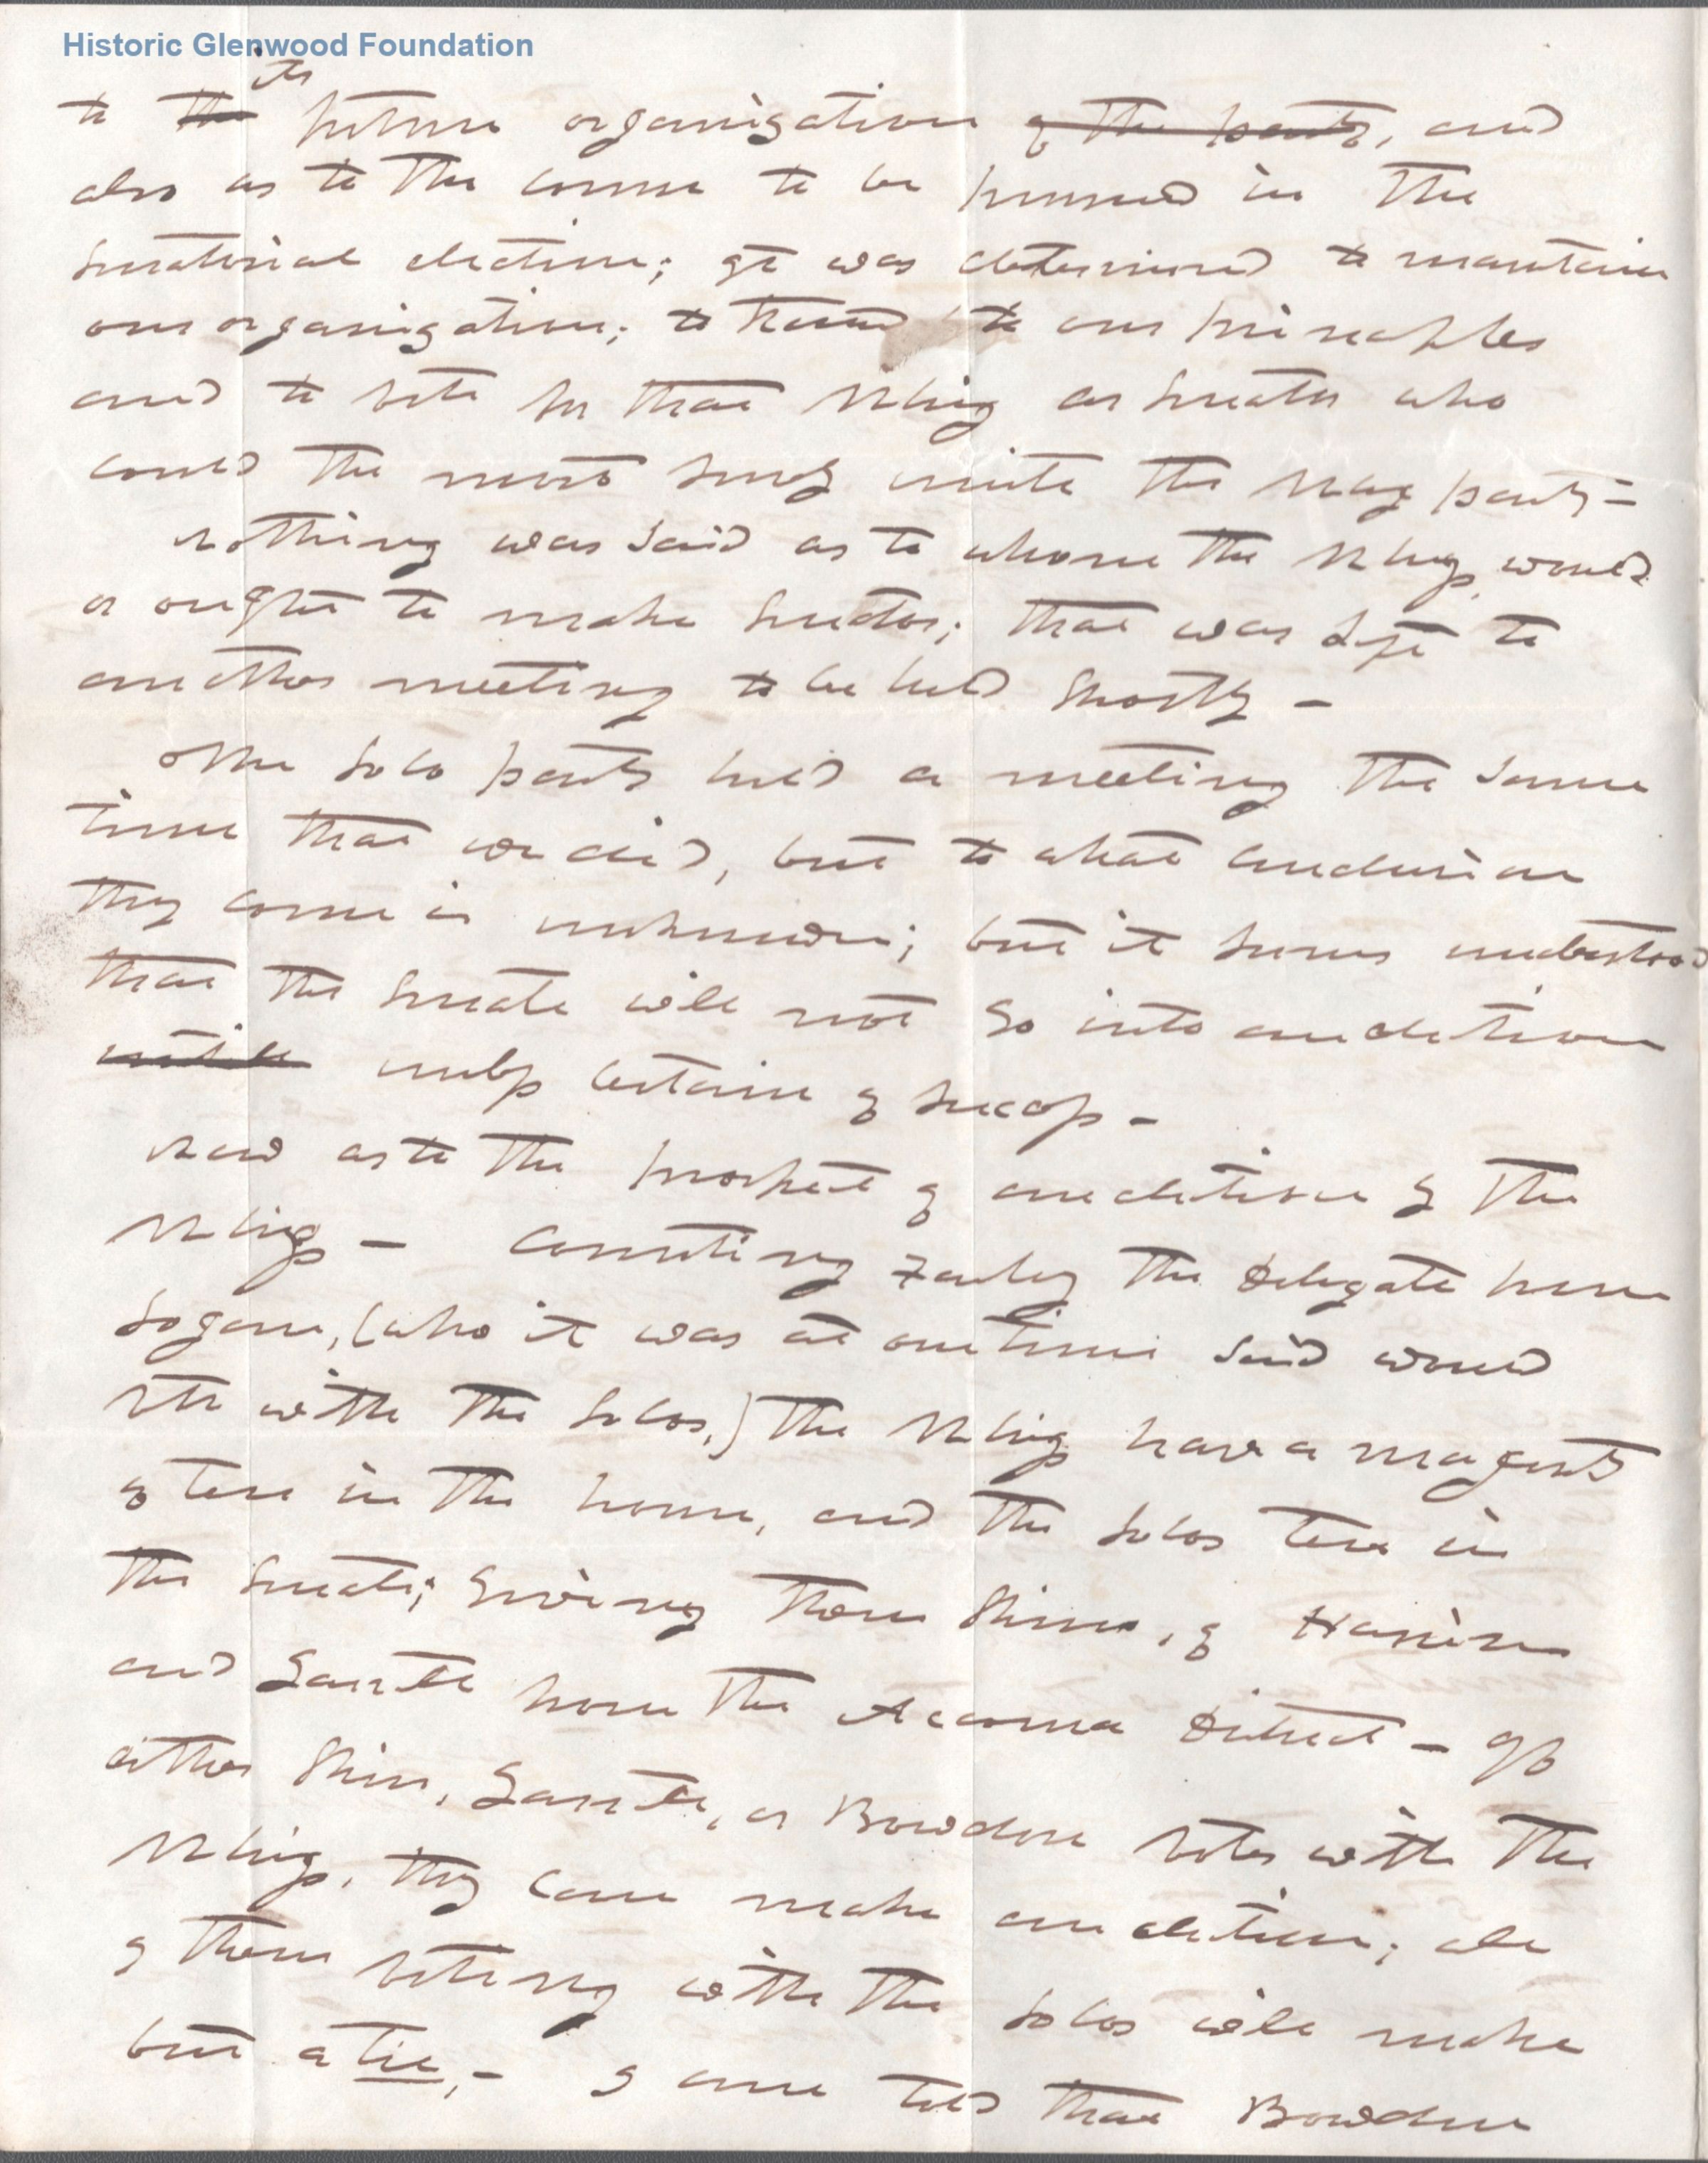 Historic Glenwood Foundation
its
to the future organization of the party, and
also as to the course to be pursued in the
senatorial election; It was determined to maintain
our organization; to stand to our principles
and to vote for that Whig as senator who
could the most surely unite the Whig party -
nothing was said as to whom the Whigs would
or ought to make senator; that was left to
another meeting to be held shortly -
The Loco party held a meeting the same
time that we did, but to what conclusion
they come is unknown; but it seems understood
that the Senate will not go into an election
until unless certain of success -
Now as to the prospect of an election of the
Whigs - Counting the Delegate from
Logan, (who it was at one time said would
vote with the Locos,) the Whigs have a majority
of ten in the house, and the Locos ten in
the Senate; giving them Shinn, of Harrison
and Gantt from the Accomac District - If
either Shinn, Gantt, or Bowdon votes with the
Whigs, they can make an election; all
of them voting with the Locos will make
but a tie, - I am told that Bowdon